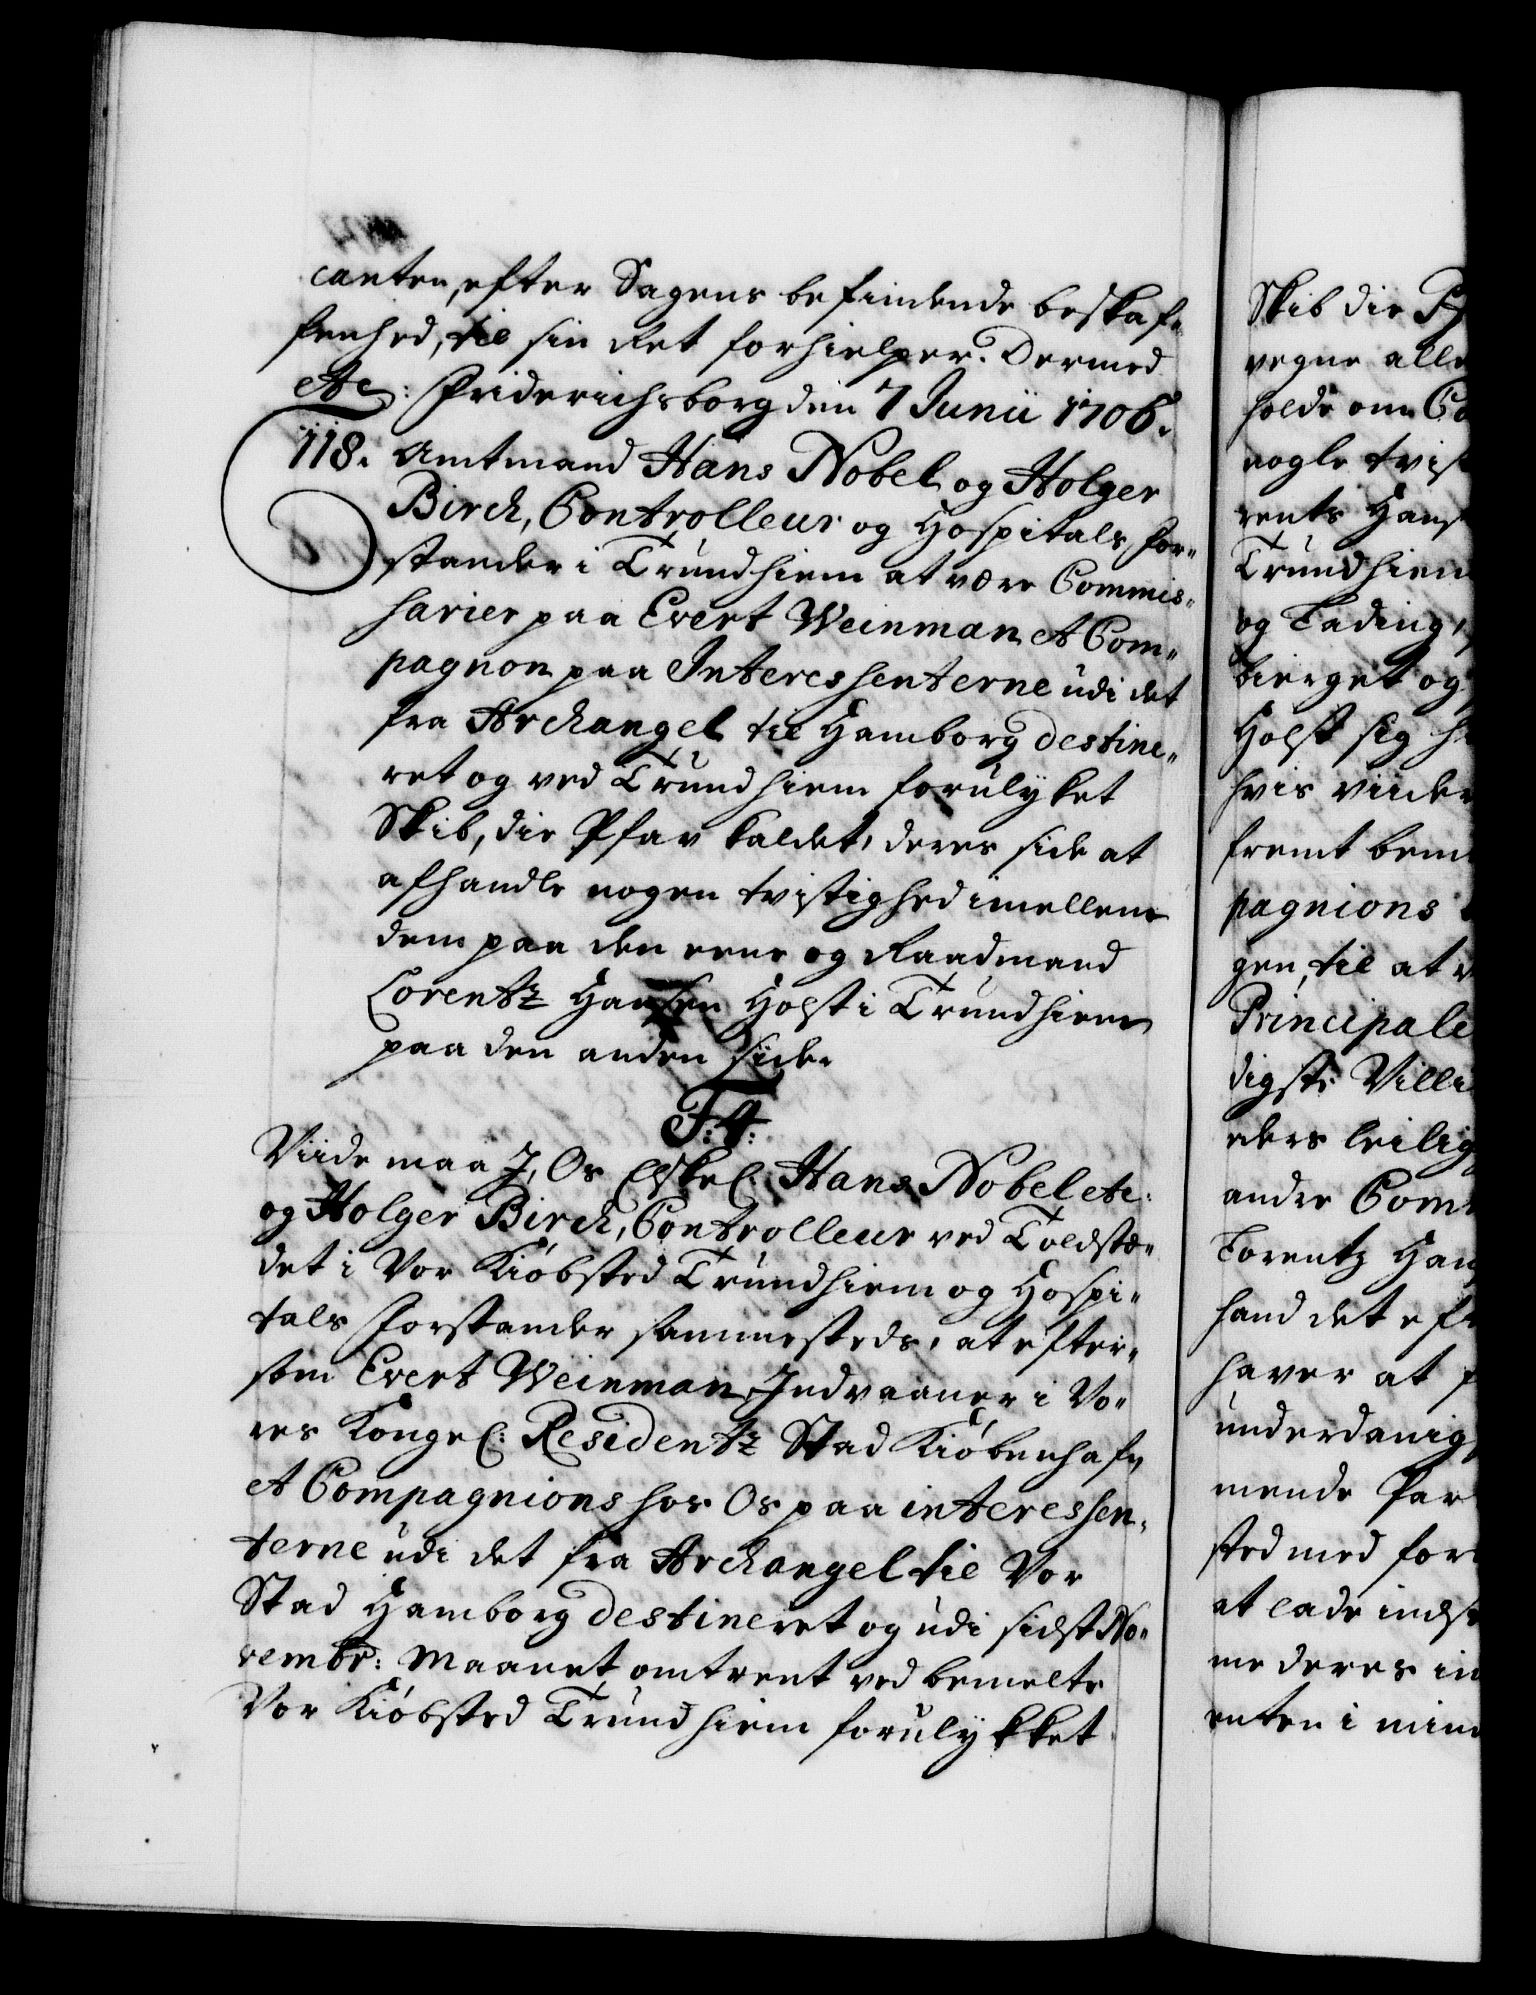 canten, efter Sagens befindende beskaf„
fenhed, til sin Ret forhielper. Dermed
etc: Friderichsborg den 7 Junii 1706.
118. Amtmand Hans Nobel og Holger
Birch, Controlleur og Hospitals For„
stander i Trundhiem at være Commis„
sarier paa Evert Weinman et Com„
pagnon paa Interessenterne udi det
fra Archangel til Hamborg destine„
ret og ved Trundhiem forulyket
Skib, die Pfav kaldet, deres side at
afhandle nogen tvistighed imellem
dem paa den eene og Raadmand
Lorentz Hansen Holst i Trundhiem
paa den anden side.
F: 4:
Viide maa I, Os Elskel. Hans Nobel etc:
og Holger Birch, Controlleur ved Toldstæ„
det i Vor Kiøbsted Trundhiem og Hospi„
tals Forstander sammesteds, at efter„
som Evert Weinman Indvaaner i Vo„
res Kongel: Residentz Stad Kiøbenhafn
et Compagnions hos Os paa interessen„
terne udi det fra Archangel til Vor
Stad Hamborg destineret og udi sidst No„
vembr: Maanet omtrent ved bemelte
Vor Kiøbsted Trundhiem forulykket
Skib die
vegne alle
holde om
nogle
rents Hans
Trundhiem
og Lading,
bierget og
Holst sig
hvis viider
fremt bem
pagnions
gen, til at
Principale
digste Villi
ders leilig
andre Com
Lorentz Han
hand det eft
haver at
underdanig
mende Par
sted med for
at lade indst
me deres in
enten i min